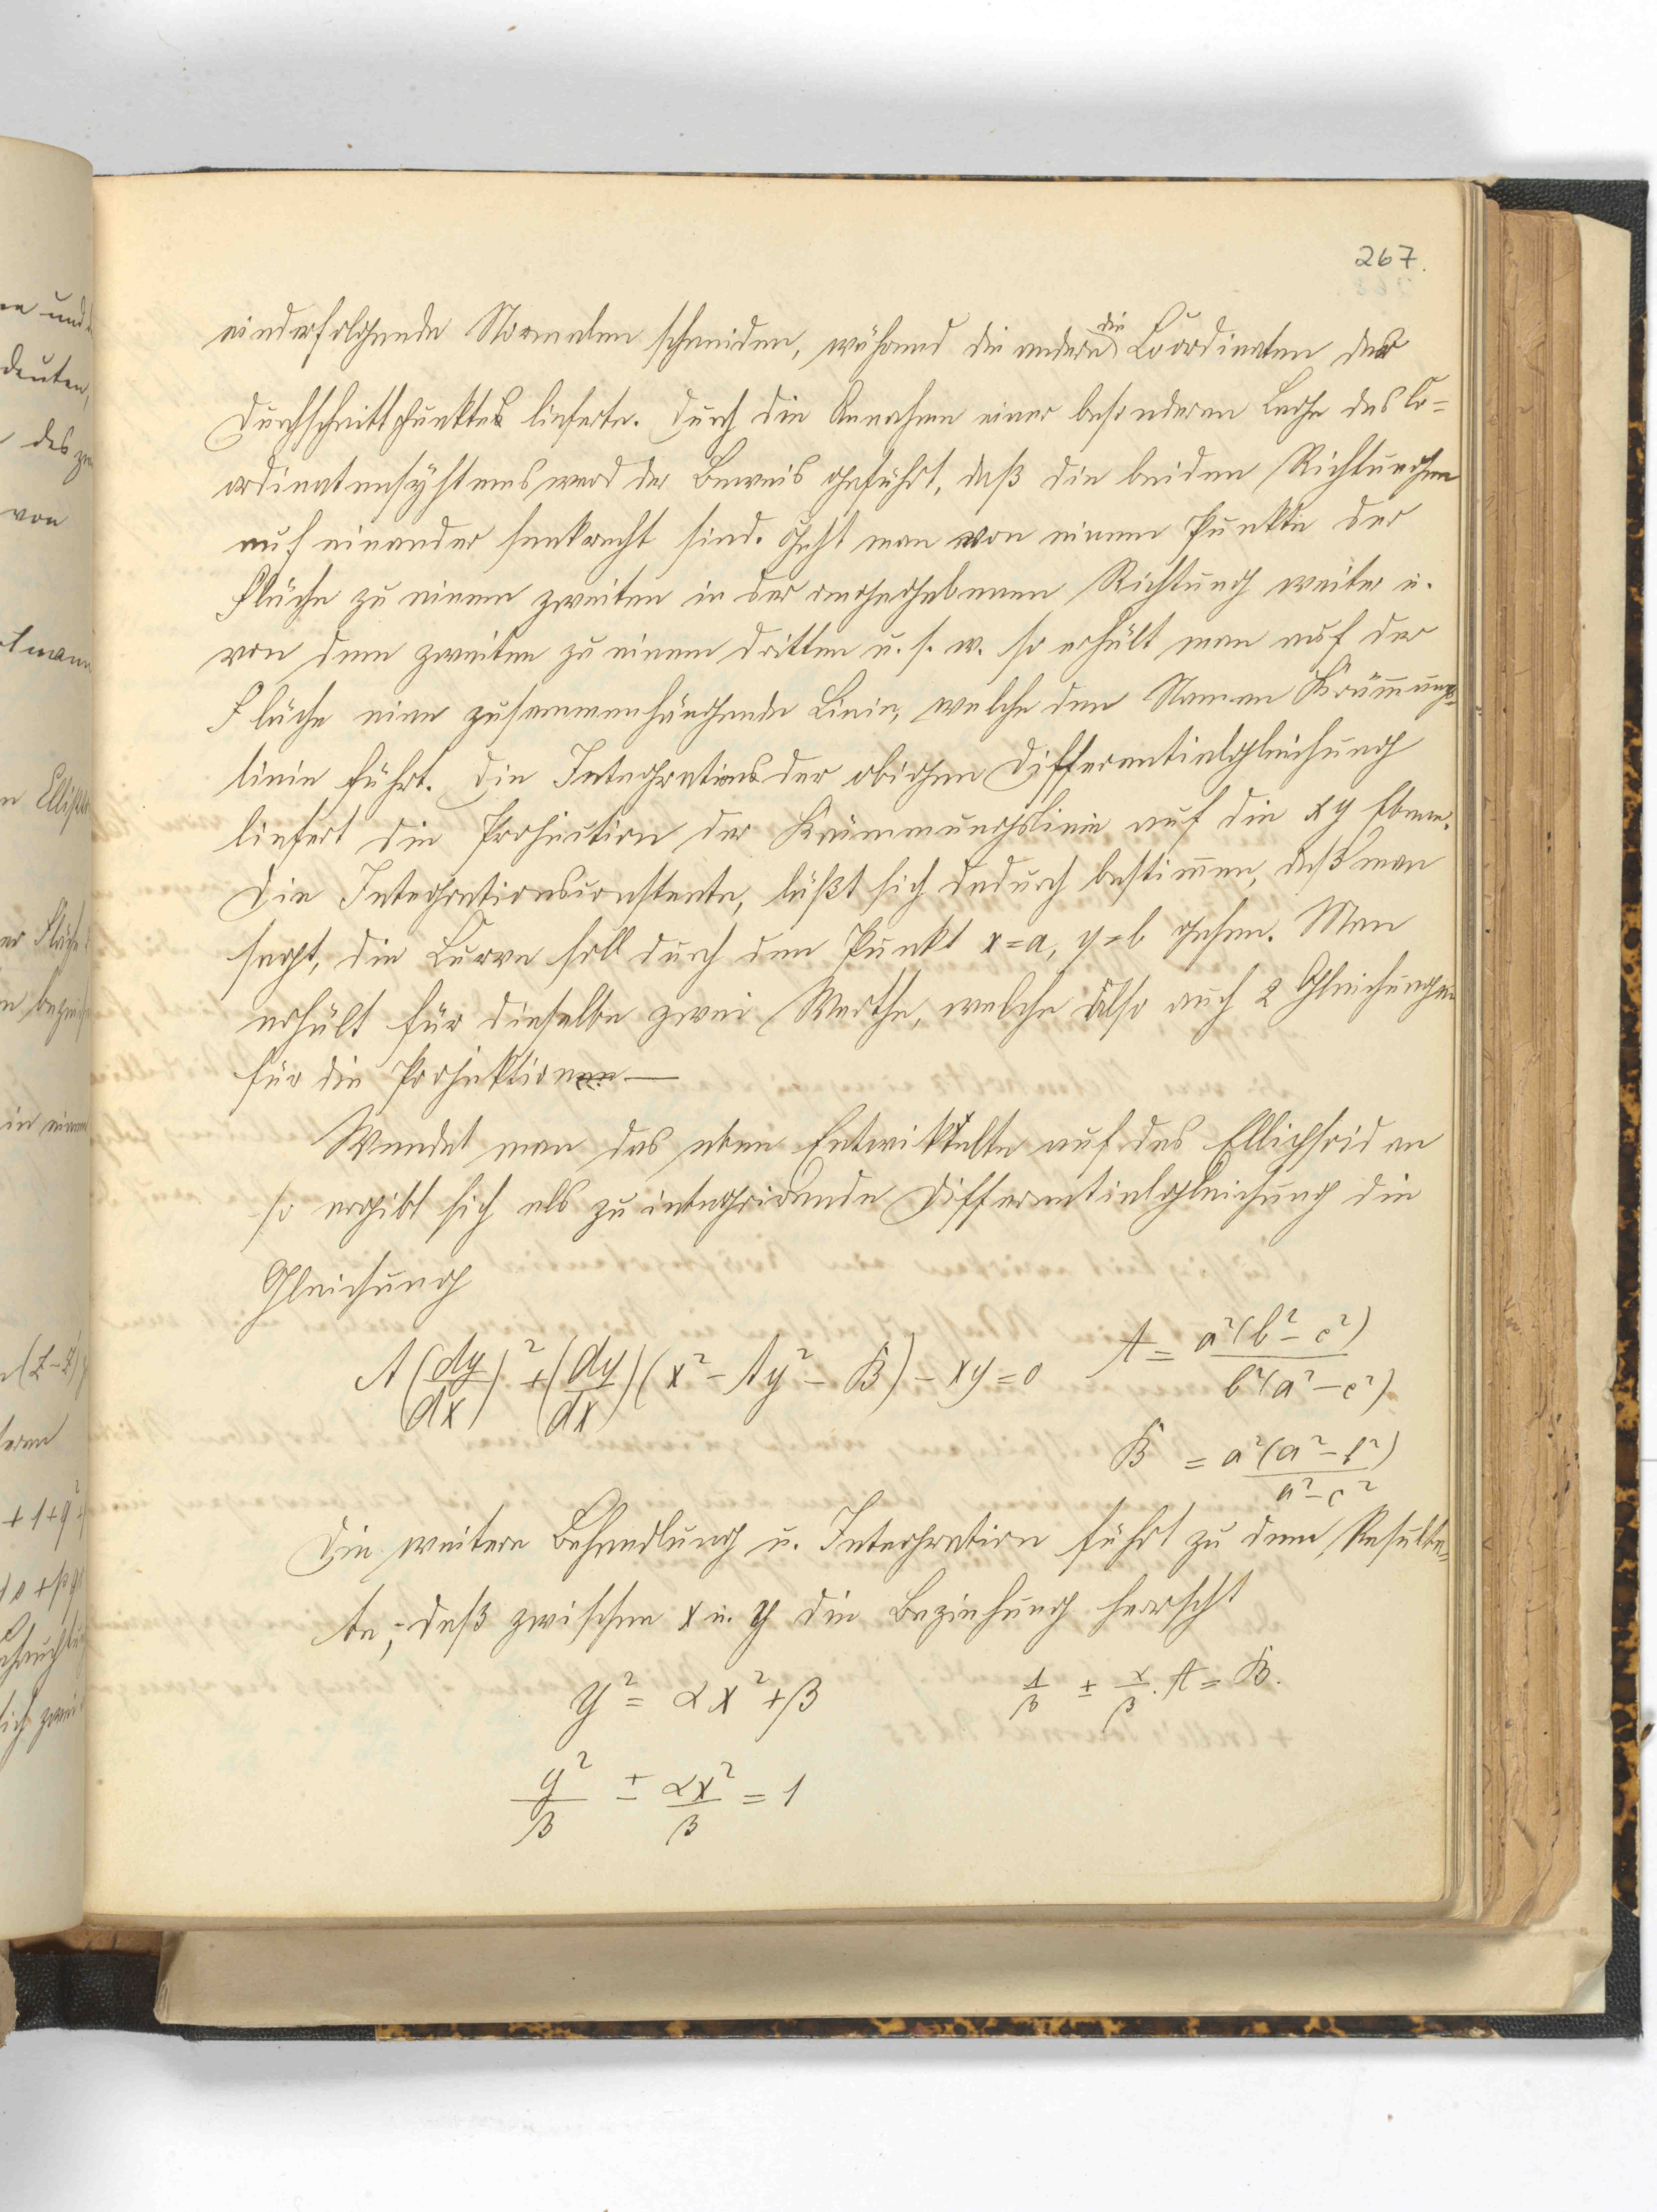 267.
einderfolgende Normalen schneiden, während die andere die Coordinaten des
Durchschnittspunktes lieferte. Durch die Annahme einer besonderen Lage des Co-
ordinatensystems ward der Beweis geführt, daß die beiden Richtungen
auf einander senkrecht sind. Geht man von einem Punkte der
Fläche zu einem zweiten in der angegebenen Richtung weiter u.
von dem zweiten zu einem dritten u. s. w. so erhält man auf der
Fläche eine zusammenhängende Linie, welche den Namen Krümmungs-
linie führt. Die Integration der obigen Differentialgleichung
liefert die Projection der Krümmungslinie auf die xy Ebene.
Die Integrationsconstante, läßt sich dadurch bestimmen, daß man
sagt, die Curve soll durch den Punkt x=a, y=b gehen. Man
erhält für dieselbe zwei Werthe, welche also auch 2 Gleichungen
für die Projektion
Wendet man das eben Entwikkelte auf das Ellipsoid an
so ergibt sich als zu integrirende Differentialgleichung die
Gleichung
A(dy/dx)² + (dy/dx)(x² − Ay² − B) − xy = 0 A = a²(b² − c²)/b²(a² − c²)
B = a²(a² − b²)/a² − c²
Die weitere Behandlung u. Integration führt zu dem Resulta-
te, daß zwischen x u. y die Beziehung herrscht
y² = αx² + β 1/β ± α/β . A = B.
y²/β ± αx²/β = 1